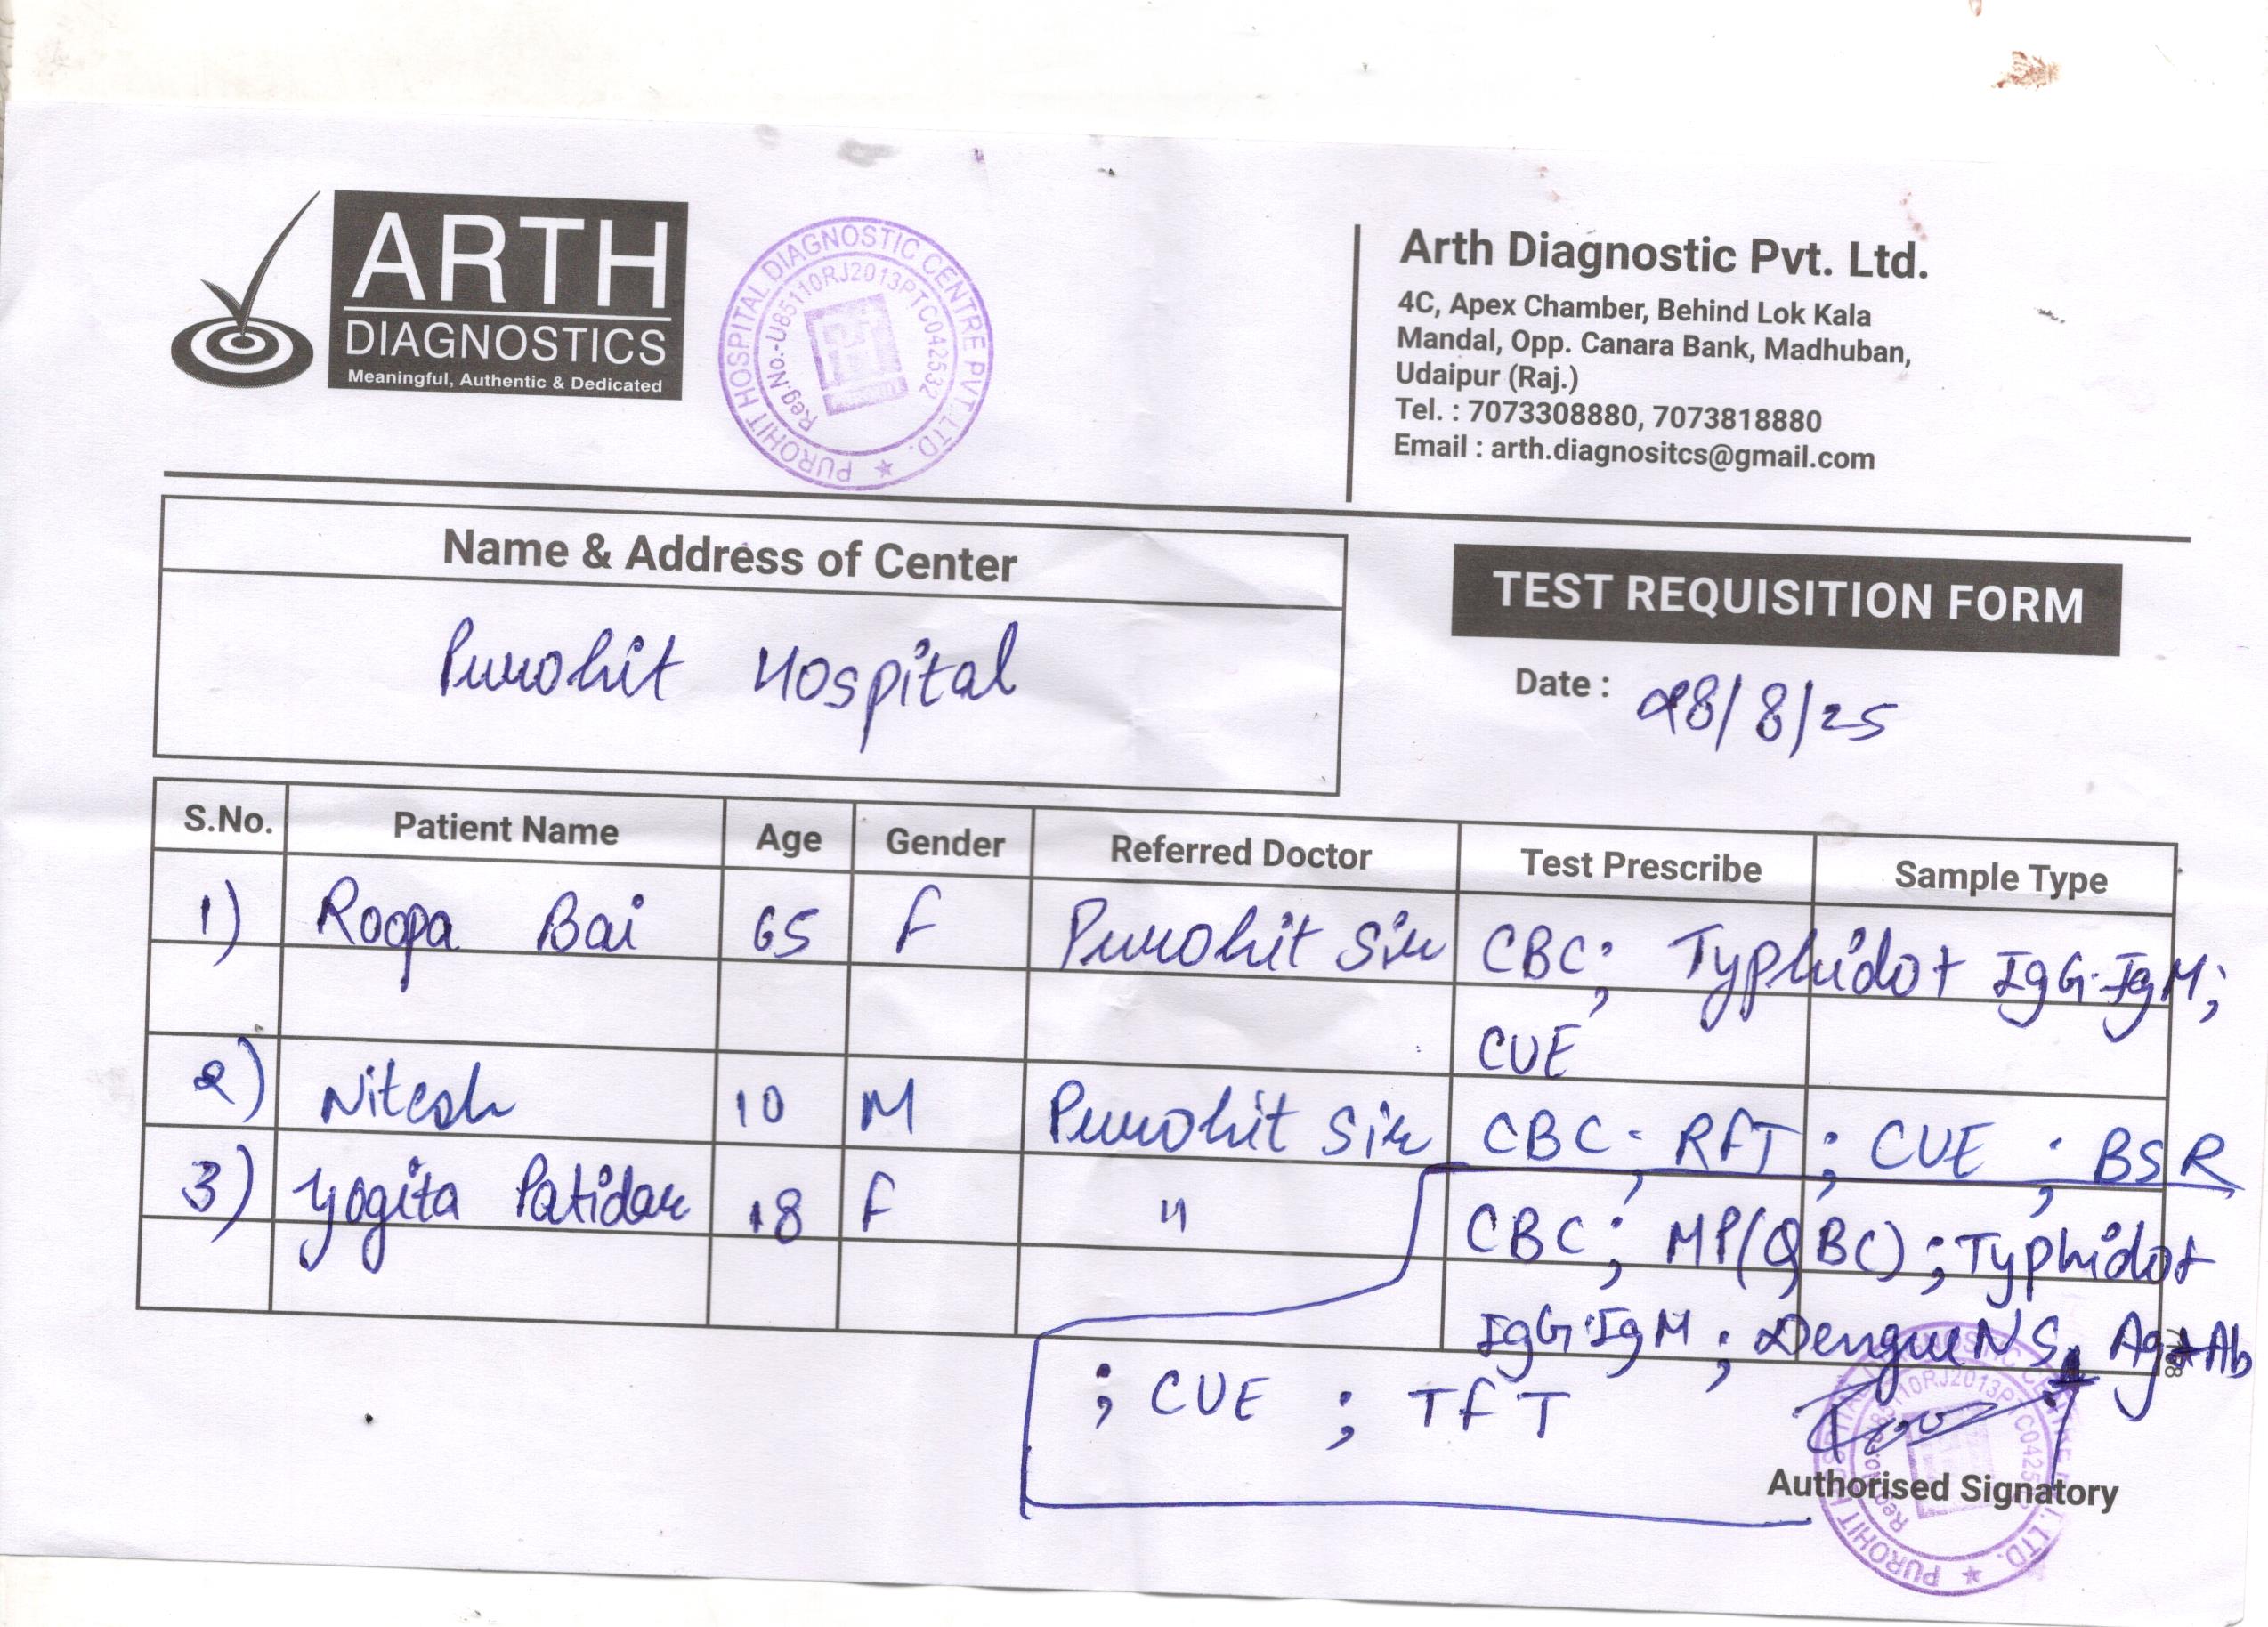 ARTH
DIAGNOSTICS
Meaningful, Authentic & Dedicated
PUROHIT HOSPITAL DIAGNOSTIC CENTRE PVT. LTD.
Reg.No.-U85110RJ2013PTC042532
Arth Diagnostic Pvt. Ltd.
4C, Apex Chamber, Behind Lok Kala
Mandal, Opp. Canara Bank, Madhuban,
Udaipur (Raj.)
Tel. : 7073308880, 7073818880
Email : arth.diagnositcs@gmail.com
Name & Address of Center
Purohit Hospital
TEST REQUISITION FORM
Date : 28/8/25
S.No. Patient Name Age Gender Referred Doctor Test Prescribe Sample Type
1) Roopa Bai 65 F Purohit Sir CBC; Typhidot IgG.IgM;
CUE
2) Nitesh 10 M Purohit Sir CBC; RFT; CUE; BSR
3) Yogita Patidar 18 F " CBC; MP(QBC); Typhidot
IgG.IgM; Dengue NS1 Ag+Ab
; CUE ; TFT
Authorised Signatory
PUROHIT